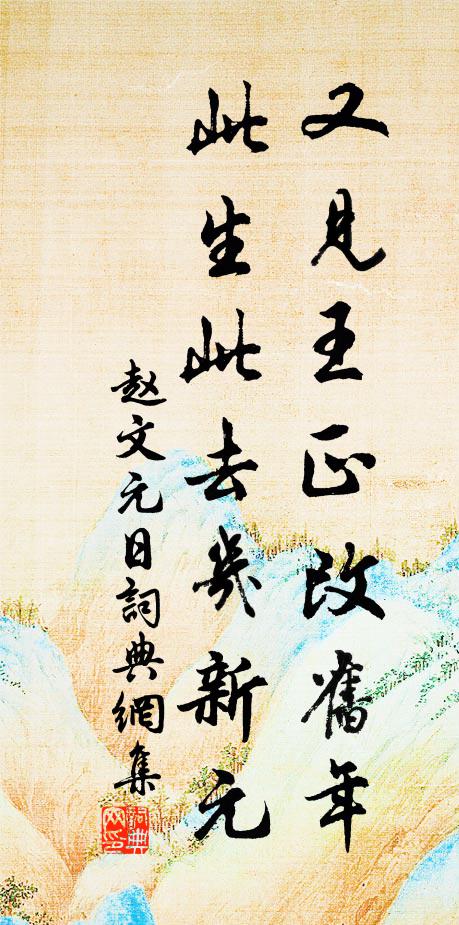 又見王正改舊年
此生此去幾新元
趙文元日詞典網集
詞典網印